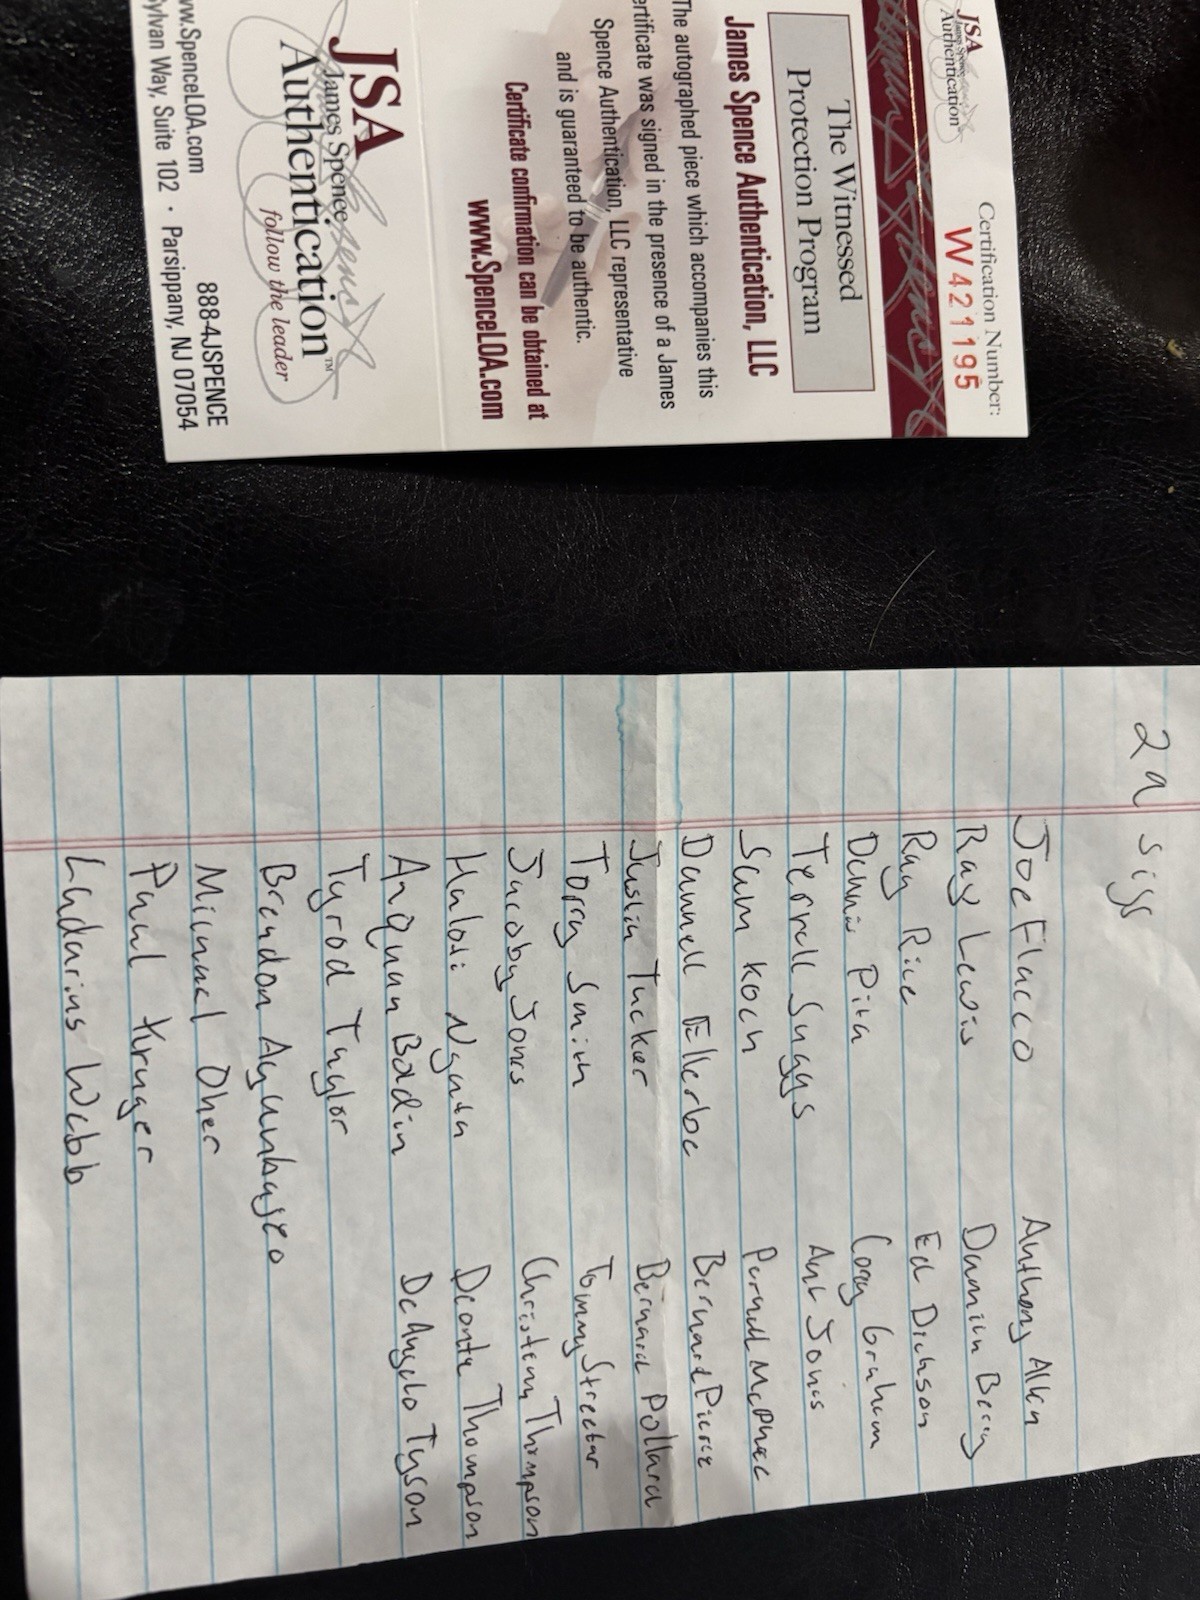 JSA
James Spence
Authentication
Certification Number:
W421195
The Witnessed
Protection Program
James Spence Authentication, LLC
The autographed piece which accompanies this
ertificate was signed in the presence of a James
Spence Authentication, LLC representative
and is guaranteed to be authentic.
Certificate confirmation can be obtained at
www.SpenceLOA.com
JSA
James Spence
Authentication™
follow the leader
888-4JSPENCE
ww.SpenceLOA.com
ylvan Way, Suite 102 · Parsippany, NJ 07054
29 sigs
Joe Flacco Anthony Allen
Ray Lewis Damien Berry
Ray Rice Ed Dickson
Dennis Pita Corey Graham
Terrell Suggs Art Jones
Sam Koch Pernell McPhee
Dannell Ellerbe Bernard Pierce
Justin Tucker Bernard Pollard
Torrey Smith Tommy Streeter
Jacoby Jones Christian Thompson
Haloti Ngata Deonte Thompson
AnQuan Boldin DeAngelo Tyson
Tyrod Taylor
Brendon Ayanbadejo
Michael Oher
Paul Kruger
Ladarius Webb